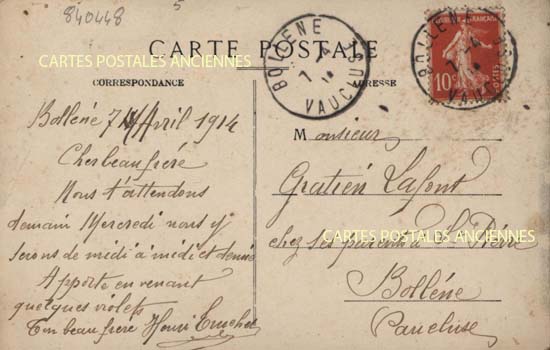 840448
5
CARTE POSTALE
CARTES POSTALES ANCIENNES
CORRESPONDANCE
ADRESSE
BOLLENE
7 - 4
VAUCLUSE
BOLLENE
7 - 4
VAUCLUSE
10c
Bolléné 7 Avril 1914
Cher beau frère
Nous t'attendons
demain Mercredi nous y
serons de midi à midi et demie
Apporte en venant
quelques violets
Ton beau frère Henri
Monsieur
Gratien Lafont
CARTES POSTALES ANCIENNES
chez ses parents à St Pierre
Bolléne
Vaucluse